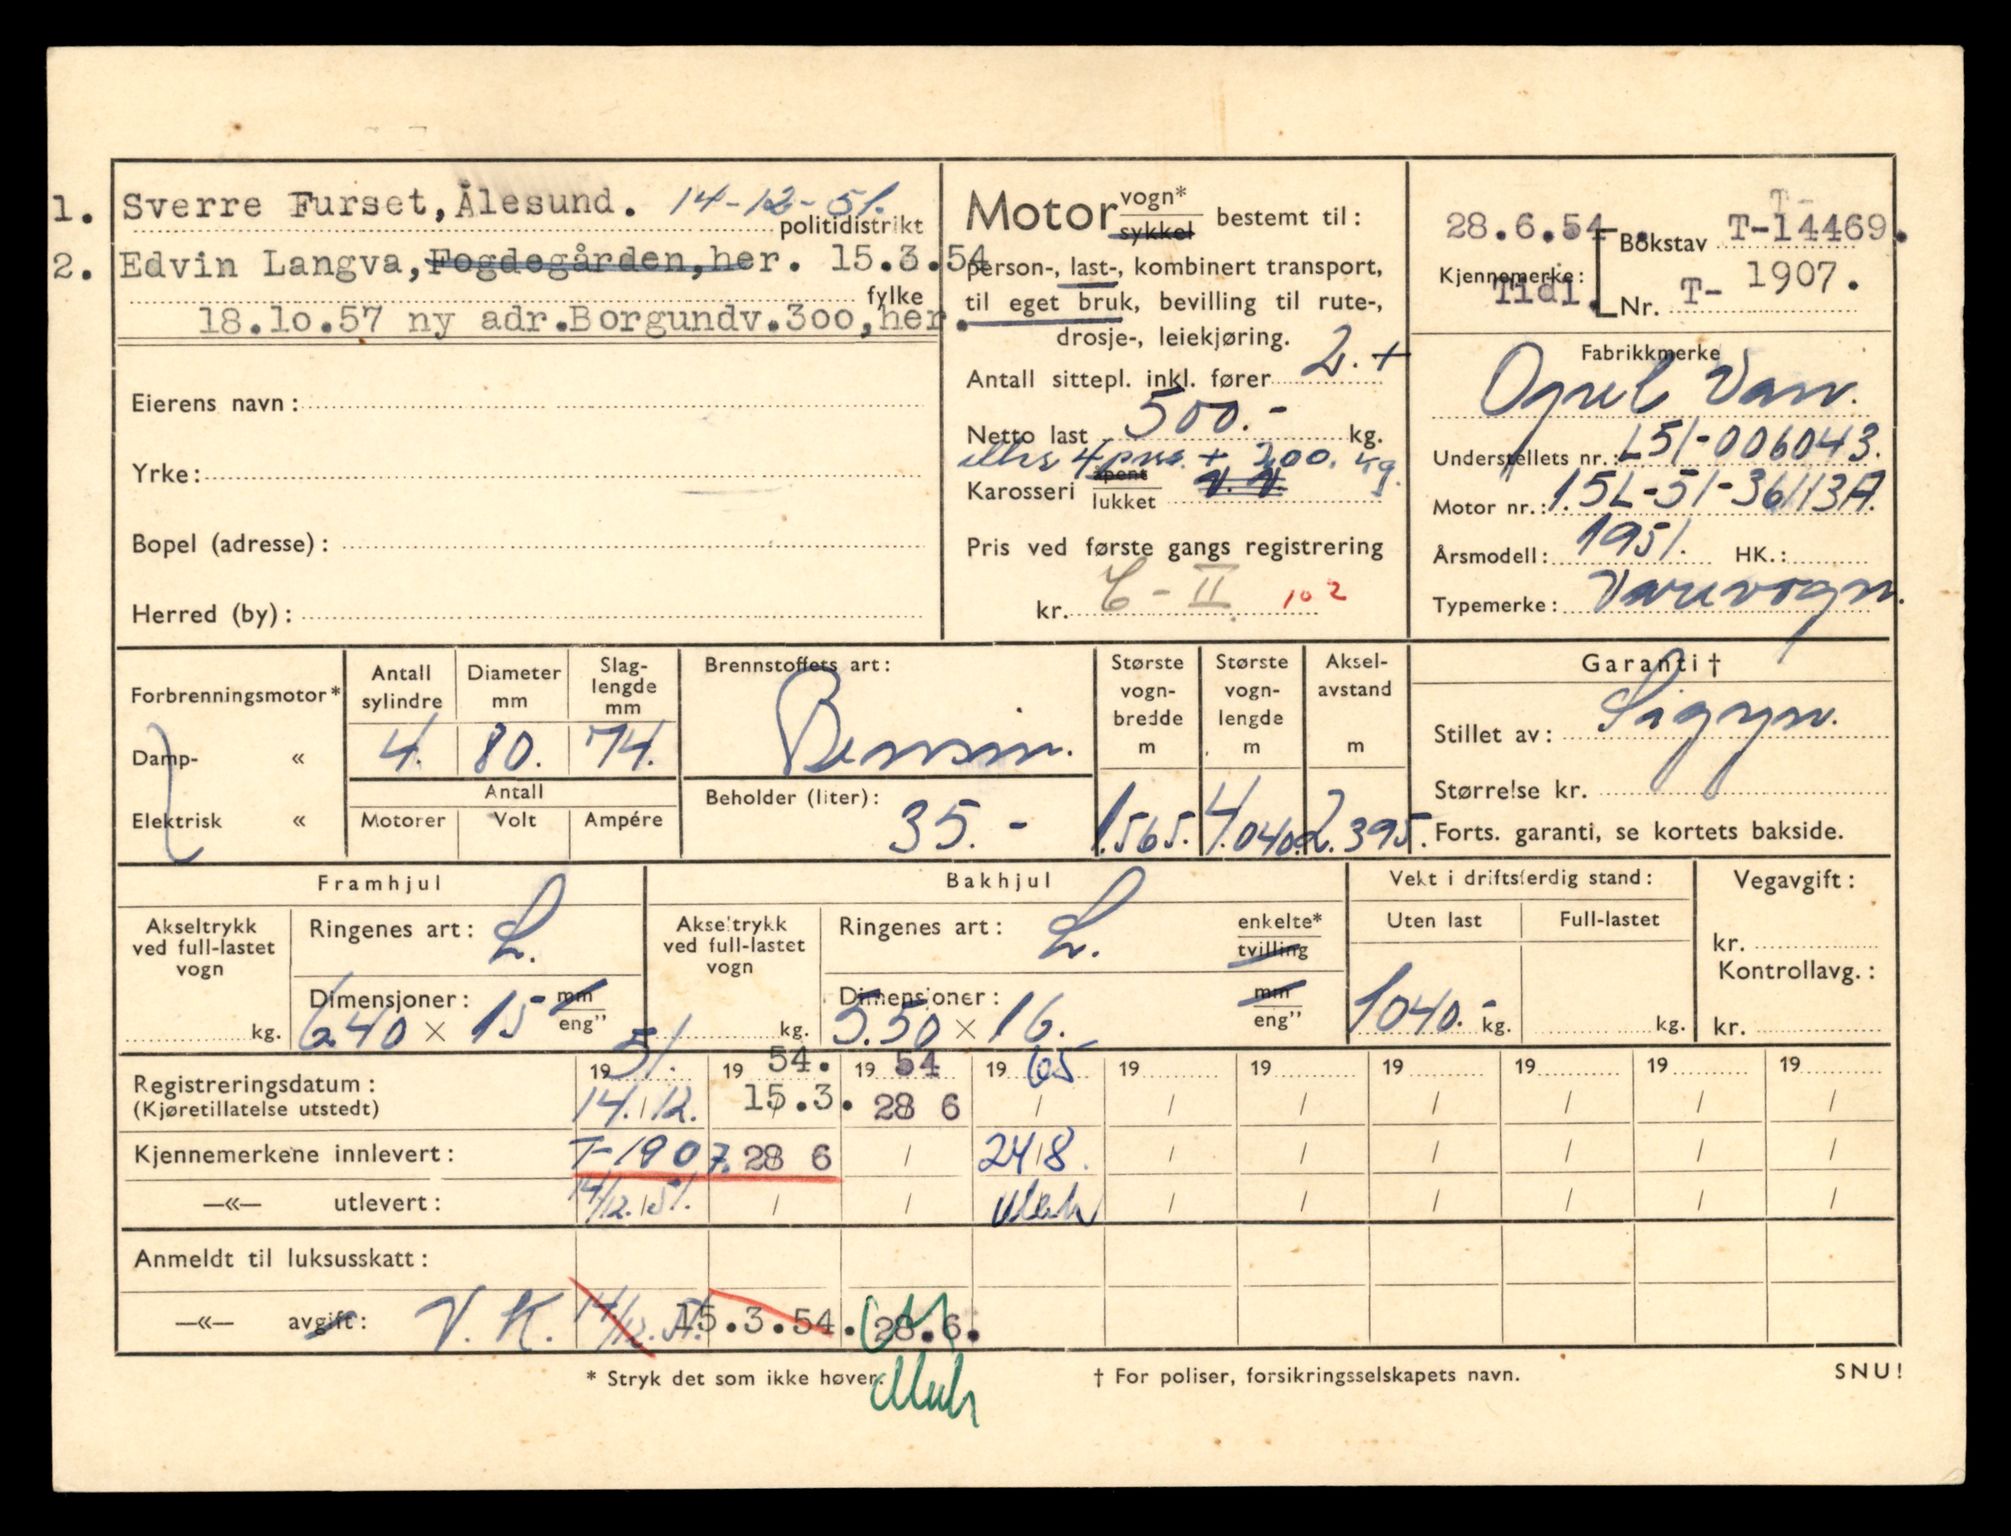 1. Sverre Furset, Ålesund. 14-12-51.
politidistrikt
2. Edvin Langva, Fogdegården, her. 15.3.54
fylke
18.10.57 ny adr. Borgundv. 300, her.
Eierens navn:
Yrke:
Bopel (adresse):
Herred (by):
Motor vogn* sykkel bestemt til:
person-, last-, kombinert transport,
til eget bruk, bevilling til rute-,
drosje-, leiekjøring.
Antall sittepl. inkl. fører 2. +
Netto last 500.- kg.
eller 4 pers. + 200. kg.
Karosseri åpent lukket V. V.
Pris ved første gangs registrering
kr. C - II 102
T-
28.6.54. Bokstav T-14469.
Kjennemerke:
Tidl. Nr. T- 1907.
Fabrikkmerke
Opel Varv.
Understellets nr.: L51-006043.
Motor nr.: 1.5L-51-36113A.
Årsmodell: 1951. HK.:
Typemerke: Varevogn.
Forbrenningsmotor*
Damp- «
Elektrisk «
Antall sylindre Diameter mm Slag-lengde mm
4. 80. 74.
Antall
Motorer Volt Ampére
Brennstoffets art:
Bensin.
Beholder (liter):
35.-
Største vogn-bredde m Største vogn-lengde m Aksel-avstand m
1.565. 4.040. 2.395.
Garanti †
Stillet av: Sigyn.
Størrelse kr.
Forts. garanti, se kortets bakside.
Framhjul
Akseltrykk ved full-lastet vogn
kg.
Ringenes art: L.
Dimensjoner: mm
6.40 × 15 eng"
Bakhjul
Akseltrykk ved full-lastet vogn
kg.
Ringenes art: L. enkelte* tvilling
Dimensjoner: mm
5.50 × 16. eng"
Vekt i driftsferdig stand:
Uten last Full-lastet
1040.- kg. kg.
Vegavgift:
kr.
Kontrollavg.:
kr.
Registreringsdatum: 19 51. 19 54. 19 54 19 65 19 19 19 19 19 19
(Kjøretillatelse utstedt) 14./12. 15.3. 28 6 / / / / / / /
Kjennemerkene innlevert: T-1907. 28 6 / 24/8. / / / / / /
—«— utlevert: 14/12.51. / / / / / / / /
Anmeldt til luksusskatt:
—«— avgift: V. K. 14/12.51. 15.3.54. 28.6.
* Stryk det som ikke høver.
† For poliser, forsikringsselskapets navn.
SNU!